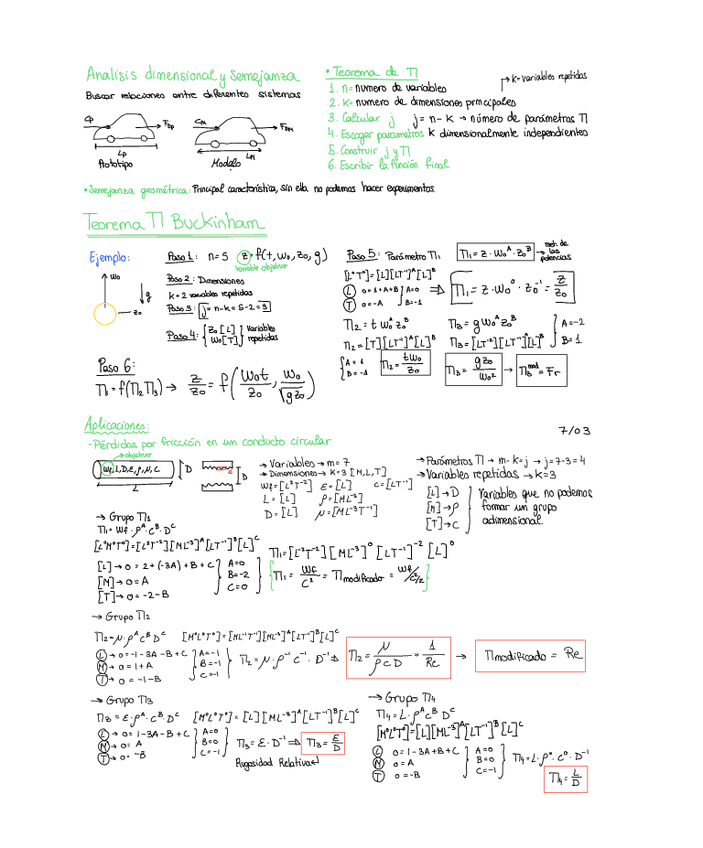 Analisis dimensional y Semejanza
Buscar relaciones entre diferentes sistemas
Prototipo
Modelo
• Semejanza geométrica: Principal característica, sin ella no podemos hacer experimentos.
• Teorema de Π
k = variables repetidas
1. n = numero de variables
2. k = numero de dimensiones principales
3. Calcular j j = n - k → número de parámetros Π
4. Escoger parametros k dimensionalmente independientes
5. Construir j y Π
6. Escribir la función final
Teorema Π Buckinham
Ejemplo:
W₀
g
z₀
Paso 1: n = 5 z = f(t, w₀, z₀, g)
variable objetivo
Paso 2: Dimensiones
k = 2 variables repetidas
Paso 3: j = n - k = 5 - 2 = 3
Paso 4: { z₀ [L] W₀ [T] } variables repetidas
Paso 5: Parámetro Π₁ Π₁ = z · W₀ᴬ · z₀ᴮ
[L⁰T⁰] = [L][LT⁻¹]ᴬ[L]ᴮ
(L) 0 = 1 + A + B } A = 0
(T) 0 = -A } B = -1
⇒ Π₁ = z · W₀⁰ · z₀⁻¹ = z/z₀
Π₂ = t W₀ᴬ z₀ᴮ
Π₂ = [T][LT⁻¹]ᴬ[L]ᴮ
{ A = 1 B = -1 Π₂ = tW₀/z₀
Π₃ = g W₀ᴬ z₀ᴮ } A = -2
Π₃ = [LT⁻²][LT⁻¹]ᴬ[L]ᴮ } B = 1
Π₃ = gz₀/W₀² → Π₃ᵐᵒᵈ = Fr
Paso 6:
Π₁ = f(Π₂ Π₃) → z/z₀ = f(W₀t/z₀, W₀/√gz₀)
Aplicaciones:
7/03
• Pérdidas por fricción en un conducto circular
objetivo
Wf, L, D, ε, ρ, μ, C
D
L
D
→ Variables → m = 7
→ Dimensiones → k = 3 [M, L, T]
Wf = [L²T⁻²] ε = [L] C = [LT⁻¹]
L = [L] ρ = [ML⁻³]
D = [L] μ = [ML⁻¹T⁻¹]
→ Parámetros Π → m - k = j → j = 7 - 3 = 4
→ Variables repetidas → k = 3
[L] → D
[M] → ρ
[T] → C
Variables que no podemos
formar un grupo
adimensional.
→ Grupo Π₁
Π₁ = Wf · ρᴬ · Cᴮ Dᶜ
[L⁰M⁰T⁰] = [L²T⁻²][ML⁻³]ᴬ[LT⁻¹]ᴮ[L]ᶜ
[L] → 0 = 2 + (-3A) + B + C } A = 0
[M] → 0 = A } B = -2
[T] → 0 = -2 - B } C = 0
Π₁ = [L²T⁻²][ML⁻³]⁰[LT⁻¹]⁻²[L]⁰
{ Π₁ = Wf/C² = Πmodificado = Wf/C²/2 }
→ Grupo Π₂
Π₂ = μ · ρᴬ Cᴮ Dᶜ [M⁰L⁰T⁰] = [ML⁻¹T⁻¹][ML⁻³]ᴬ[LT⁻¹]ᴮ[L]ᶜ
(L) → 0 = -1 - 3A - B + C } A = -1
(M) → 0 = 1 + A } B = -1
(T) → 0 = -1 - B } C = -1
Π₂ = μ · ρ⁻¹ C⁻¹ · D⁻¹ ⇒ Π₂ = μ/ρCD = 1/Re → Πmodificado = Re
→ Grupo Π₃
Π₃ = ε · ρᴬ · Cᴮ Dᶜ [M⁰L⁰T⁰] = [L][ML⁻³]ᴬ[LT⁻¹]ᴮ[L]ᶜ
(L) → 0 = 1 - 3A - B + C } A = 0
(M) → 0 = A } B = 0
(T) → 0 = -B } C = -1
Π₃ = ε · D⁻¹ ⇒ Π₃ = ε/D
Rugosidad Relativa
→ Grupo Π₄
Π₄ = L · ρᴬ Cᴮ Dᶜ
[M⁰L⁰T⁰] = [L][ML⁻³]ᴬ[LT⁻¹]ᴮ[L]ᶜ
(L) 0 = 1 - 3A + B + C } A = 0
(M) 0 = A } B = 0
(T) 0 = -B } C = -1
Π₄ = L · ρ⁰ · C⁰ · D⁻¹
Π₄ = L/D